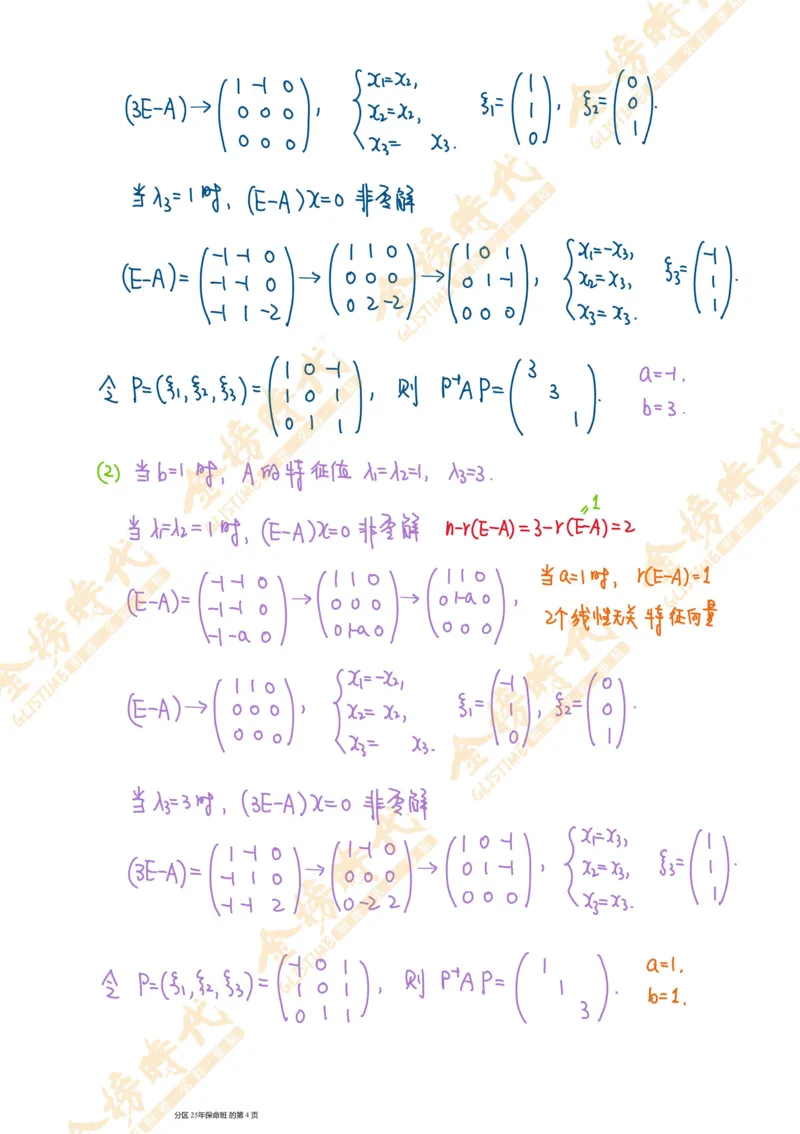 (3E-A)→(1 -1 0; 0 0 0; 0 0 0), {x₁=x₂, x₂=x₂, x₃= x₃. ξ₁=(1; 1; 0), ξ₂=(0; 0; 1).
当λ₃=1时, (E-A)x=0 非零解
(E-A)=(-1 -1 0; -1 -1 0; -1 1 -2)→(1 1 0; 0 0 0; 0 2 -2)→(1 0 1; 0 1 -1; 0 0 0), {x₁=-x₃, x₂=x₃, x₃=x₃. ξ₃=(-1; 1; 1).
令 P=(ξ₁,ξ₂,ξ₃)=(1 0 -1; 1 0 1; 0 1 1), 则 P⁻¹AP=(3 3 1). a=-1. b=3.
(2) 当b=1时, A的特征值 λ₁=λ₂=1, λ₃=3.
当λ₁=λ₂=1时, (E-A)x=0 非零解 n-r(E-A)=3-r(E-A)=2 =1
(E-A)=(-1 -1 0; -1 -1 0; -1 -a 0)→(1 1 0; 0 0 0; 0 1-a 0)→(1 1 0; 0 1-a 0; 0 0 0), 当a=1时, r(E-A)=1
2个线性无关特征向量
(E-A)→(1 1 0; 0 0 0; 0 0 0), {x₁=-x₂, x₂=x₂, x₃= x₃. ξ₁=(-1; 1; 0), ξ₂=(0; 0; 1).
当λ₃=3时, (3E-A)x=0 非零解
(3E-A)=(1 -1 0; -1 1 0; -1 -1 2)→(1 -1 0; 0 0 0; 0 -2 2)→(1 0 -1; 0 1 -1; 0 0 0), {x₁=x₃, x₂=x₃, x₃=x₃. ξ₃=(1; 1; 1).
令 P=(ξ₁,ξ₂,ξ₃)=(-1 0 1; 1 0 1; 0 1 1), 则 P⁻¹AP=(1 1 3). a=1. b=1.
分区 25年保命班 的第 4 页
金榜時代
GLISTIME